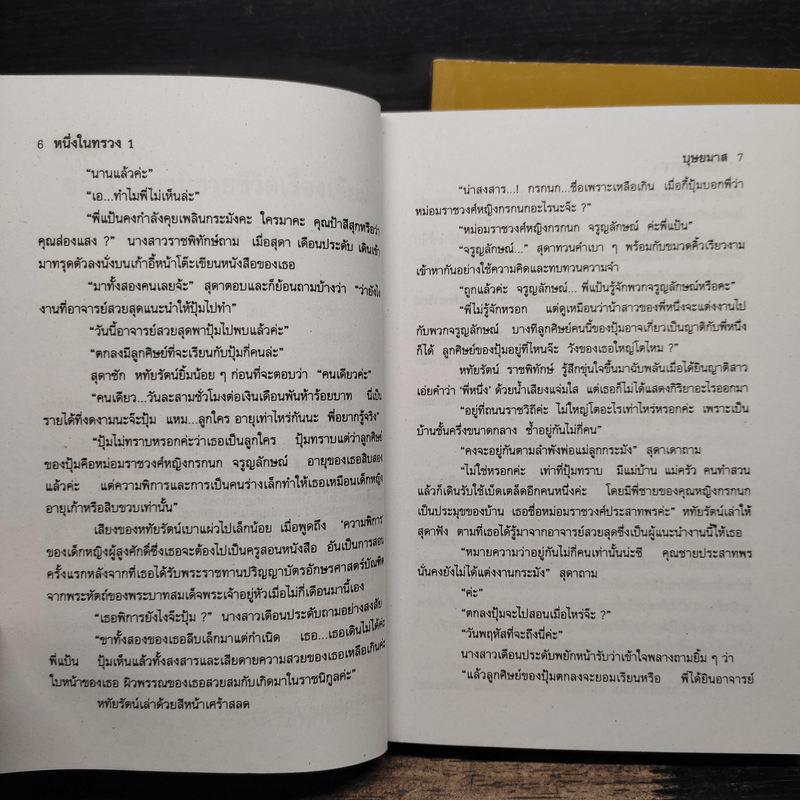 6 หนึ่งในทรวง 1
“นานแล้วค่ะ”
“เอ...ทำไมพี่ไม่เห็นล่ะ”
“พี่แป้นคงกำลังคุยเพลินกระมังคะ ใครมาคะ คุณป้าสีสุกหรือว่า
คุณส่องแสง ?” นางสาวราชพิทักษ์ถาม เมื่อสุดา เดือนประดับ เดินเข้า
มาทรุดตัวลงนั่งบนเก้าอี้หน้าโต๊ะเขียนหนังสือของเธอ
“มาทั้งสองคนเลยจ้ะ” สุดาตอบและก็ย้อนถามบ้างว่า “ว่ายังไง
งานที่อาจารย์สวยสุดแนะนำให้ปุ้มไปทำ”
“วันนี้อาจารย์สวยสุดพาปุ้มไปพบแล้วค่ะ”
“ตกลงมีลูกศิษย์ที่จะเรียนกับปุ้มกี่คนล่ะ”
สุดาซัก หทัยรัตน์ยิ้มน้อย ๆ ก่อนที่จะตอบว่า “คนเดียวค่ะ”
“คนเดียว...วันละสามชั่วโมงต่อเงินเดือนพันห้าร้อยบาท นี่เป็น
รายได้ที่งดงามนะจ๊ะปุ้ม แหม...ลูกใคร อายุเท่าไหร่กันนะ พี่อยากรู้จริง”
“ปุ้มไม่ทราบหรอกค่ะว่าเธอเป็นลูกใคร ปุ้มทราบแต่ว่าลูกศิษย์
ของปุ้มคือหม่อมราชวงศ์หญิงกรกนก จรูญลักษณ์ อายุของเธอสิบสอง
แล้วค่ะ แต่ความพิการและการเป็นคนร่างเล็กทำให้เธอเหมือนเด็กหญิง
อายุเก้าหรือสิบขวบเท่านั้น”
เสียงของหทัยรัตน์เบาแผ่วไปเล็กน้อย เมื่อพูดถึง ‘ความพิการ’
ของเด็กหญิงผู้สูงศักดิ์ซึ่งเธอจะต้องไปเป็นครูสอนหนังสือ อันเป็นการสอน
ครั้งแรกหลังจากที่เธอได้รับพระราชทานปริญญาบัตรอักษรศาสตร์บัณฑิต
จากพระหัตถ์ของพระบาทสมเด็จพระเจ้าอยู่หัวเมื่อไม่กี่เดือนมานี้เอง
“เธอพิการยังไงจ๊ะปุ้ม ?” นางสาวเดือนประดับถามอย่างสงสัย
“ขาทั้งสองของเธอลีบเล็กมาแต่กำเนิด เธอ...เธอเดินไม่ได้ค่ะ
พี่แป้น ปุ้มเห็นแล้วทั้งสงสารและเสียดายความสวยของเธอเหลือเกินค่ะ
ใบหน้าของเธอ ผิวพรรณของเธอสวยสมกับเกิดมาในราชนิกูลค่ะ”
หทัยรัตน์เล่าด้วยสีหน้าเศร้าสลด
บุษยมาส 7
“น่าสงสาร...! กรกนก...ชื่อเพราะเหลือเกิน เมื่อกี้ปุ้มบอกพี่ว่า
หม่อมราชวงศ์หญิงกรกนกอะไรนะจ๊ะ ?”
“หม่อมราชวงศ์หญิงกรกนก จรูญลักษณ์ ค่ะพี่แป้น”
“จรูญลักษณ์...” สุดาทวนคำเบา ๆ พร้อมกับขมวดคิ้วเรียวงาม
เข้าหากันอย่างใช้ความคิดและทบทวนความจำ
“ถูกแล้วค่ะ จรูญลักษณ์... พี่แป้นรู้จักพวกจรูญลักษณ์หรือคะ”
“พี่ไม่รู้จักหรอก แต่ดูเหมือนว่าน้าสาวของพี่หนึ่งจะแต่งงานไป
กับพวกจรูญลักษณ์ บางทีลูกศิษย์คนนี้ของปุ้มอาจเกี่ยวเป็นญาติกับพี่หนึ่ง
ก็ได้ ลูกศิษย์ของปุ้มอยู่ที่ไหนจ๊ะ วังของเธอใหญ่โตไหม ?”
หทัยรัตน์ ราชพิทักษ์ รู้สึกขุ่นใจขึ้นมาฉับพลันเมื่อได้ยินญาติสาว
เอ่ยคำว่า ‘พี่หนึ่ง’ ด้วยน้ำเสียงแจ่มใส แต่เธอก็ไม่ได้แสดงกิริยาอะไรออกมา
“อยู่ที่ถนนราชวิถีค่ะ ไม่ใหญ่โตอะไรเท่าไหร่หรอกค่ะ เพราะเป็น
บ้านชั้นครึ่งขนาดกลาง ซ้ำอยู่กันไม่กี่คน”
“คงจะอยู่กันตามลำพังพ่อแม่ลูกกระมัง” สุดาเดาถาม
“ไม่ใช่หรอกค่ะ เท่าที่ปุ้มทราบ มีแม่บ้าน แม่ครัว คนทำสวน
แล้วก็เดินรับใช้เบ็ดเตล็ดอีกคนหนึ่งค่ะ โดยมีพี่ชายของคุณหญิงกรกนก
เป็นประมุขของบ้าน เธอชื่อหม่อมราชวงศ์ประสาทพรค่ะ” หทัยรัตน์เล่าให้
สุดาฟัง ตามที่เธอได้รู้มาจากอาจารย์สวยสุดซึ่งเป็นผู้แนะนำงานนี้ให้เธอ
“หมายความว่าอยู่กันไม่กี่คนเท่านั้นน่ะซี คุณชายประสาทพร
นั่นคงยังไม่ได้แต่งงานกระมัง” สุดาถาม
“ค่ะ”
“ตกลงปุ้มจะไปสอนเมื่อไหร่จ๊ะ ?”
“วันพฤหัสที่จะถึงนี่ค่ะ”
นางสาวเดือนประดับพยักหน้ารับว่าเข้าใจพลางถามยิ้ม ๆ ว่า
“แล้วลูกศิษย์ของปุ้มตกลงจะยอมเรียนหรือ พี่ได้ยินอาจารย์